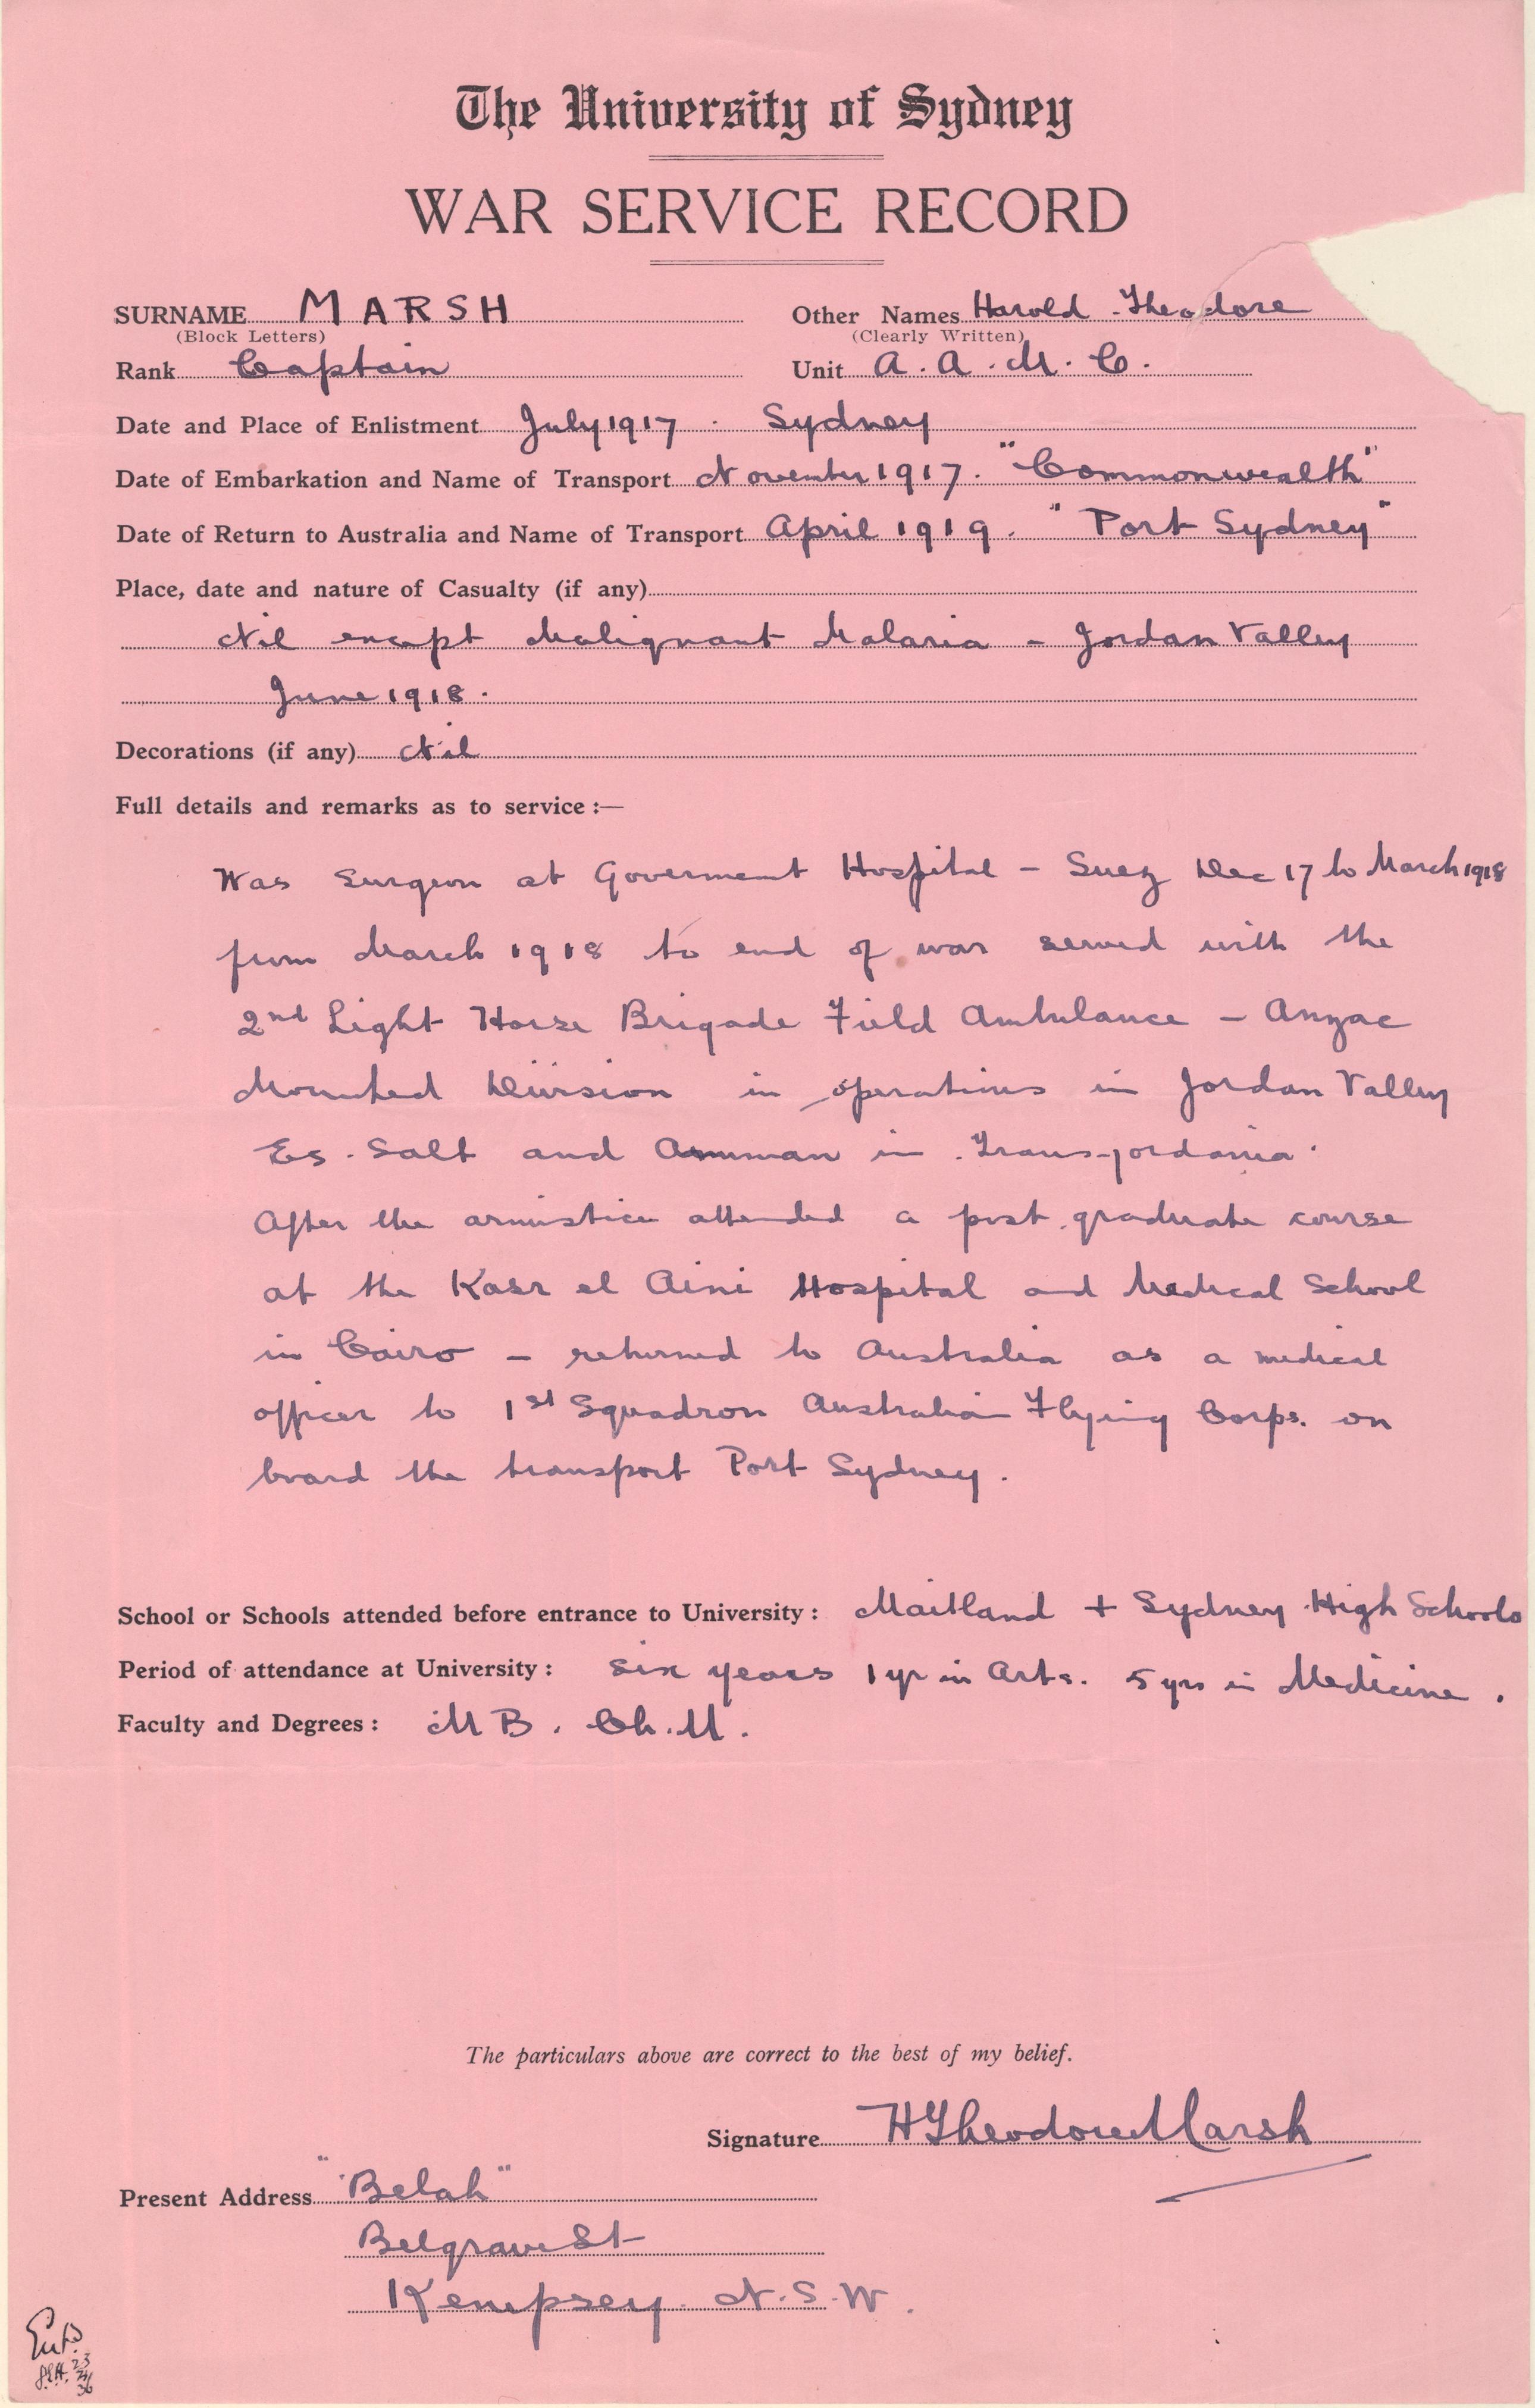 The University of Sydney
WAR SERVICE RECORD
SURNAME MARSH Other Names Harold Theodore
(Block Letters) (Clearly Written)
Rank Captain Unit A.A.M.C.
Date and Place of Enlistment July 1917 . Sydney
Date of Embarkation and Name of Transport November 1917. "Commonwealth"
Date of Return to Australia and Name of Transport April 1919. "Port Sydney"
Place, date and nature of Casualty (if any)
Nil except Malignant Malaria - Jordan Valley
June 1918.
Decorations (if any) Nil
Full details and remarks as to service :—
Was Surgeon at Goverment Hospital - Suez Dec 17 to March 1918
from March 1918 to end of war served with the
2nd Light Horse Brigade Field Ambulance - Anzac
Mounted Division in operations in Jordan Valley
Es. Salt and Amman in Trans-jordania.
After the armistice attended a post graduate course
at the Kasr el Aini Hospital and Medical School
in Cairo - returned to Australia as a medical
officer to 1st Squadron Australian Flying Corps. on
board the transport Port Sydney.
School or Schools attended before entrance to University : Maitland + Sydney High Schools
Period of attendance at University : Six years 1 yr in Arts. 5 yrs in Medicine.
Faculty and Degrees : M B. Ch.M.
The particulars above are correct to the best of my belief.
Signature H Theodore Marsh
Present Address "Belah"
Belgrave St
Kempsey. N.S.W.
23
36